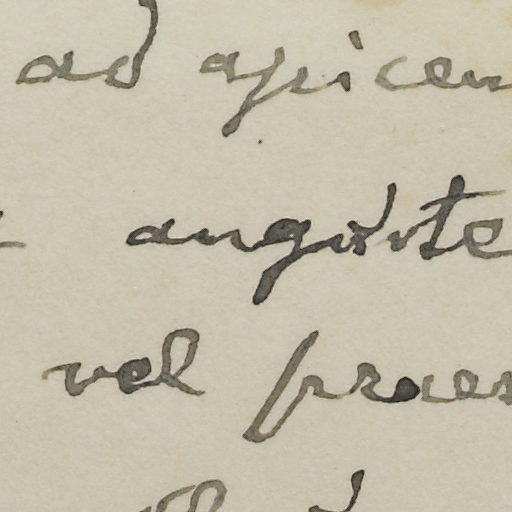 ad apicem
anguste
vel praes